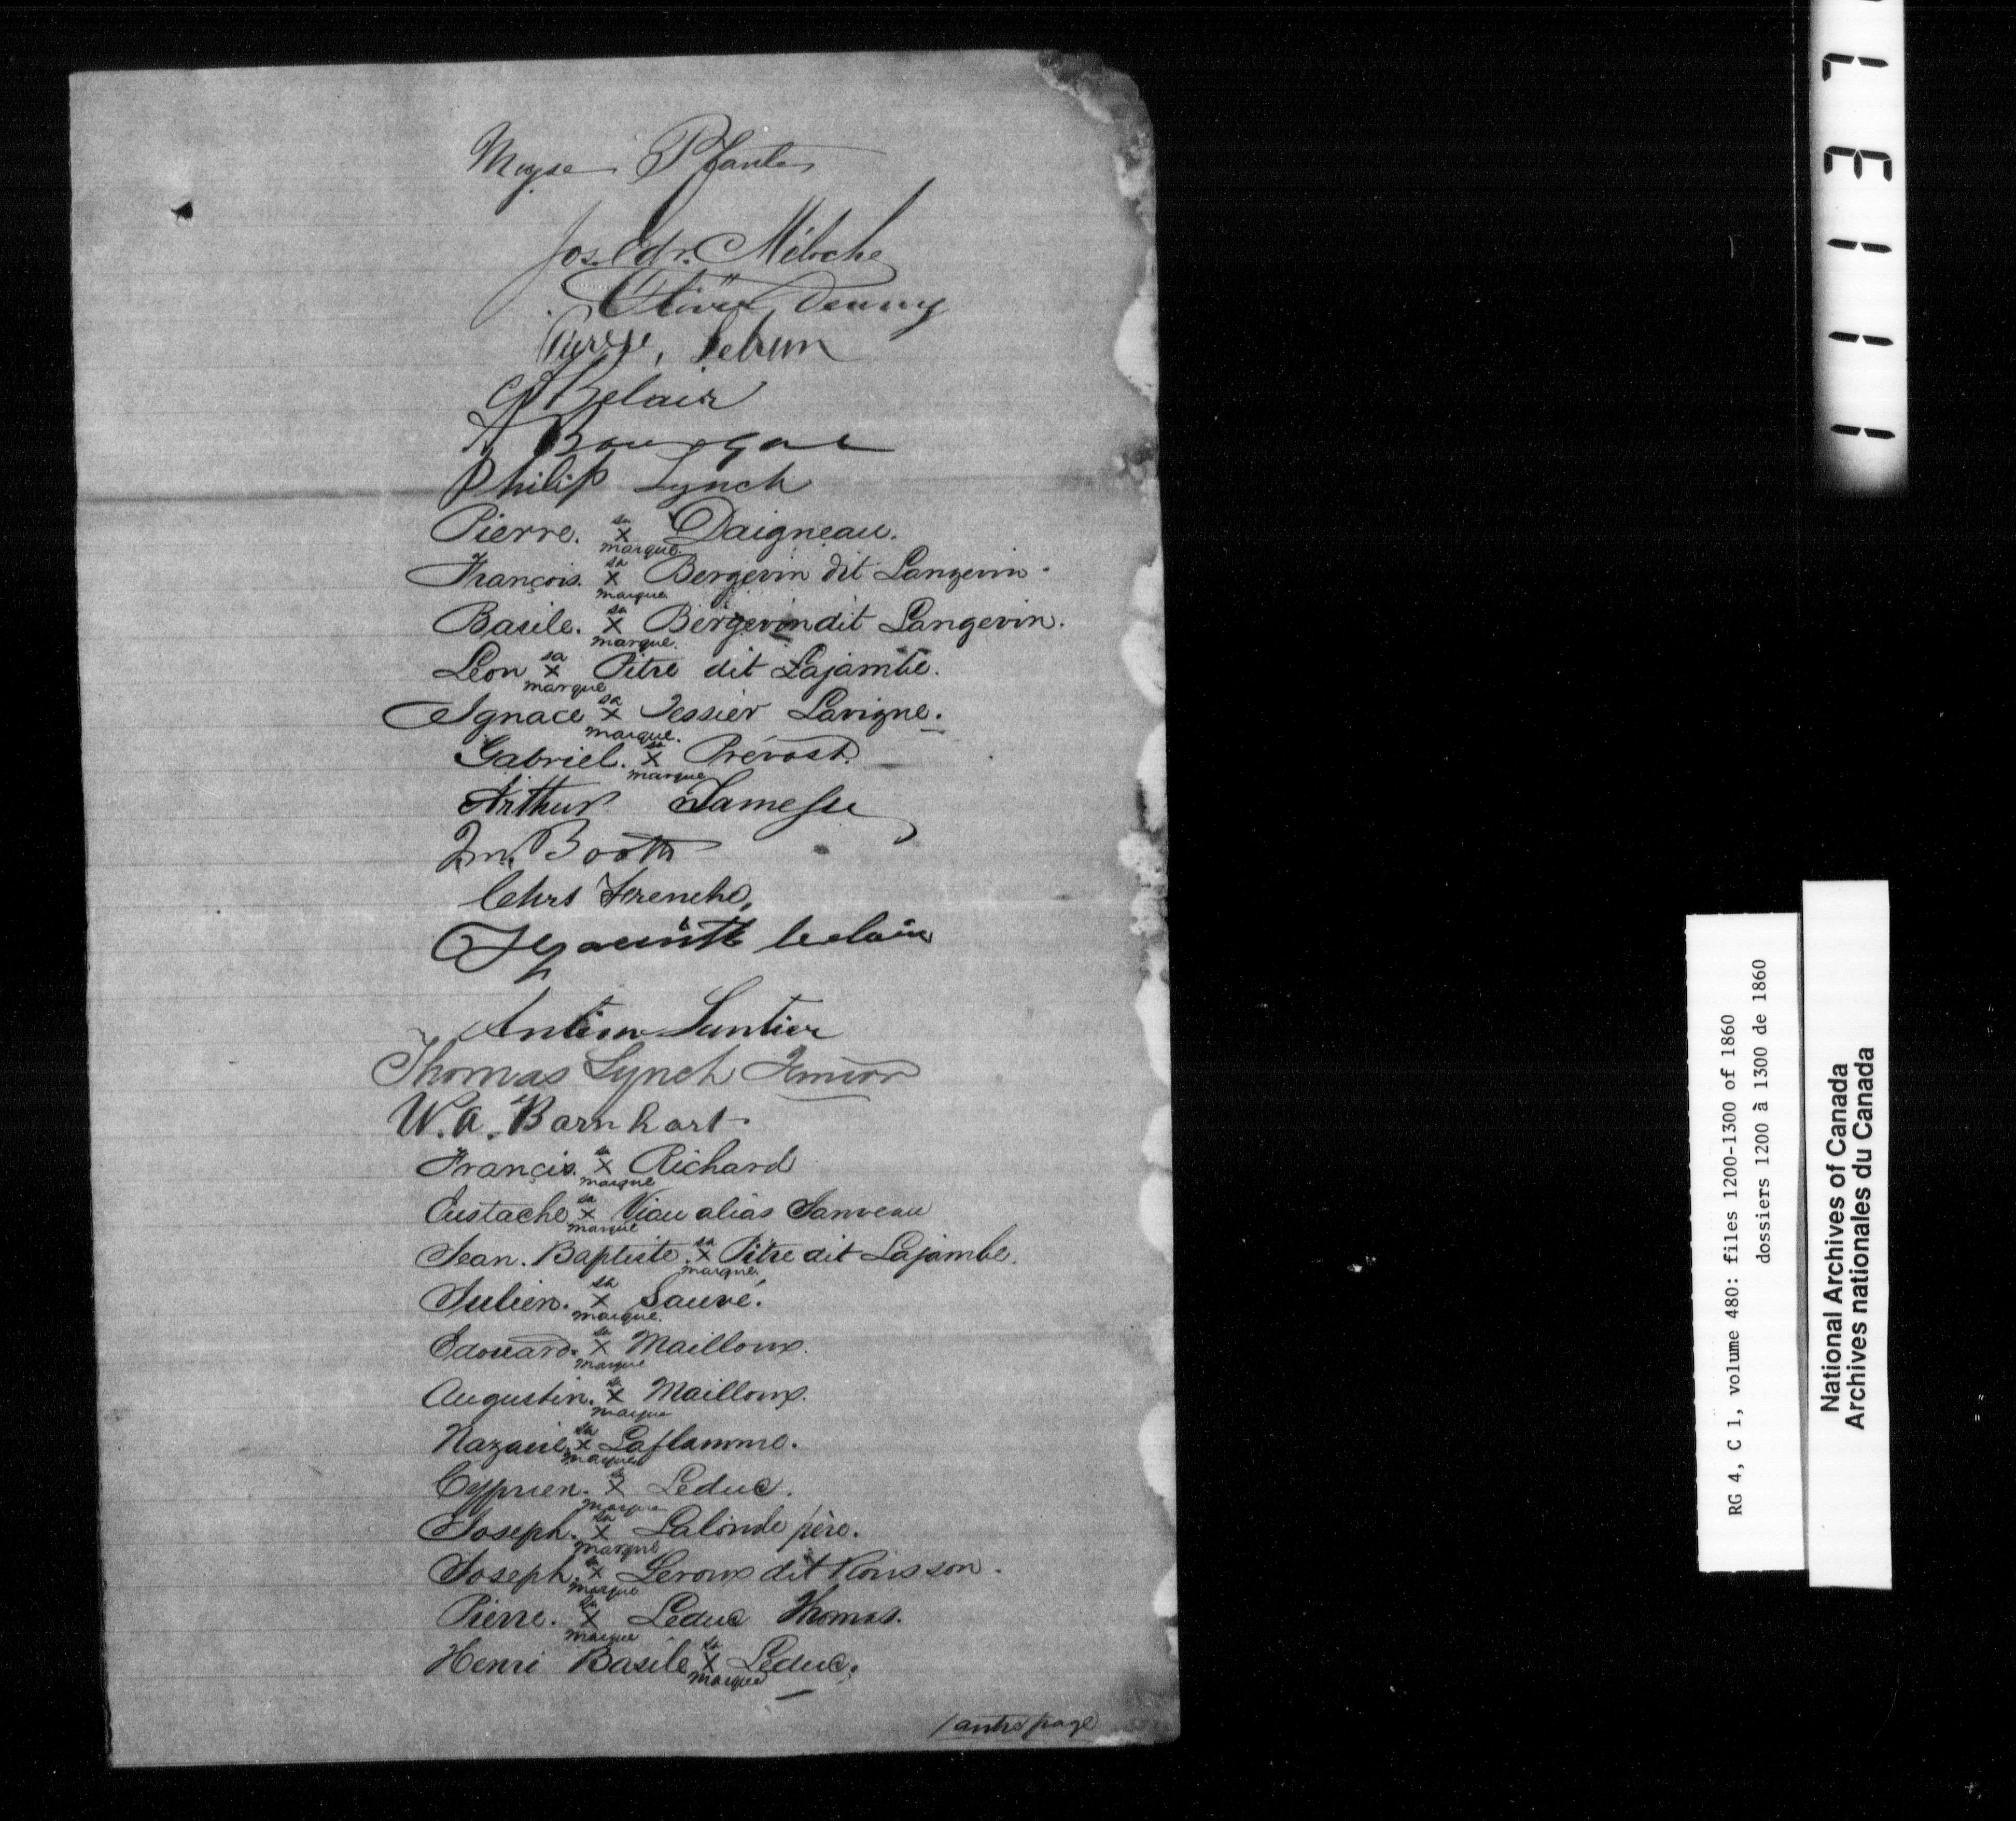 Moyse Plante
Jos. Edr. Méloche
Olivier Denny
Pierre, Lebrun
Belair
Bourgae
Philip Lynch
Pierre. sa X marque Daigneau.
François. sa X marque Bergevin dit Langevin.
Basile. sa X marque. Bergevin dit Langevin.
Léon sa X marque Pitre dit Lajambe.
Ignace sa X marque. Tessier Lavigne.
Gabriel. sa X marque Prévost.
Arthur Jamesse
Jn. Booth
Chrs Frenche,
Hyacinth leclair
Antime Lantier
Thomas Lynch Junior
W. A. Barnhart
Françis. sa X marque Richard
Eustache sa X marque Viau alias Janveau
Jean. Baptiste. sa X marque Pitre dit Lajambe.
Julien. sa X marque. Sauvé.
Edouard. sa X marque Mailloux.
Augustin. sa X marque Mailloux.
Nazaire sa X marque Laflamme.
Cyprien. sa X marque Leduc.
Joseph. sa X marque Lalonde père.
Joseph. sa X marque Leroux dit Rousson.
Pierre. sa X marque Leduc Thomas.
Henri Basile sa X marque Leduc.
/autre page
RG 4, C 1, volume 480: files 1200-1300 of 1860
dossiers 1200 à 1300 de 1860
National Archives of Canada
Archives nationales du Canada